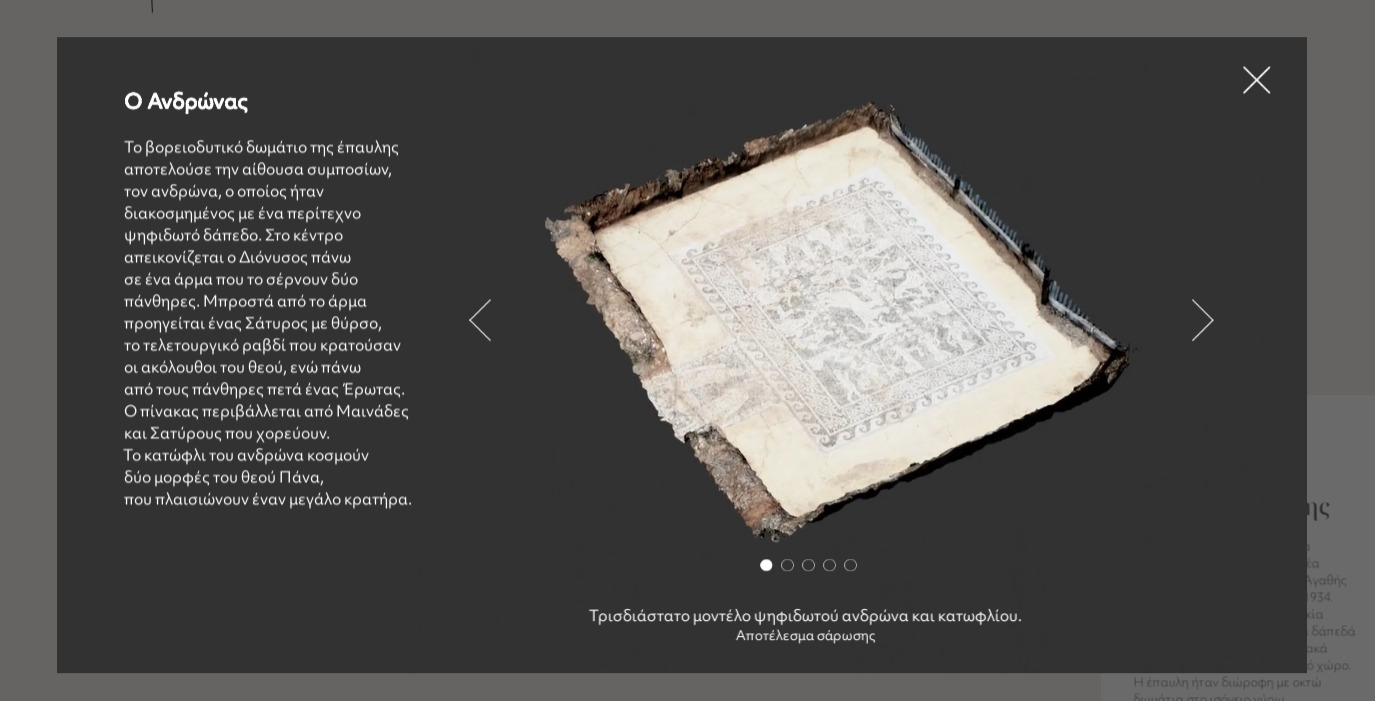 Ο Ανδρώνας
Το βορειοδυτικό δωμάτιο της έπαυλης
αποτελούσε την αίθουσα συμποσίων,
τον ανδρώνα, ο οποίος ήταν
διακοσμημένος με ένα περίτεχνο
ψηφιδωτό δάπεδο. Στο κέντρο
απεικονίζεται ο Διόνυσος πάνω
σε ένα άρμα που το σέρνουν δύο
πάνθηρες. Μπροστά από το άρμα
προηγείται ένας Σάτυρος με θύρσο,
το τελετουργικό ραβδί που κρατούσαν
οι ακόλουθοι του θεού, ενώ πάνω
από τους πάνθηρες πετά ένας Έρωτας.
Ο πίνακας περιβάλλεται από Μαινάδες
και Σατύρους που χορεύουν.
Το κατώφλι του ανδρώνα κοσμούν
δύο μορφές του θεού Πάνα,
που πλαισιώνουν έναν μεγάλο κρατήρα.
Τρισδιάστατο μοντέλο ψηφιδωτού ανδρώνα και κατωφλίου.
Αποτέλεσμα σάρωσης
ης
Αγαθής
1934.
δάπεδά
χώρο.
Η έπαυλη ήταν διώροφη με οκτώ